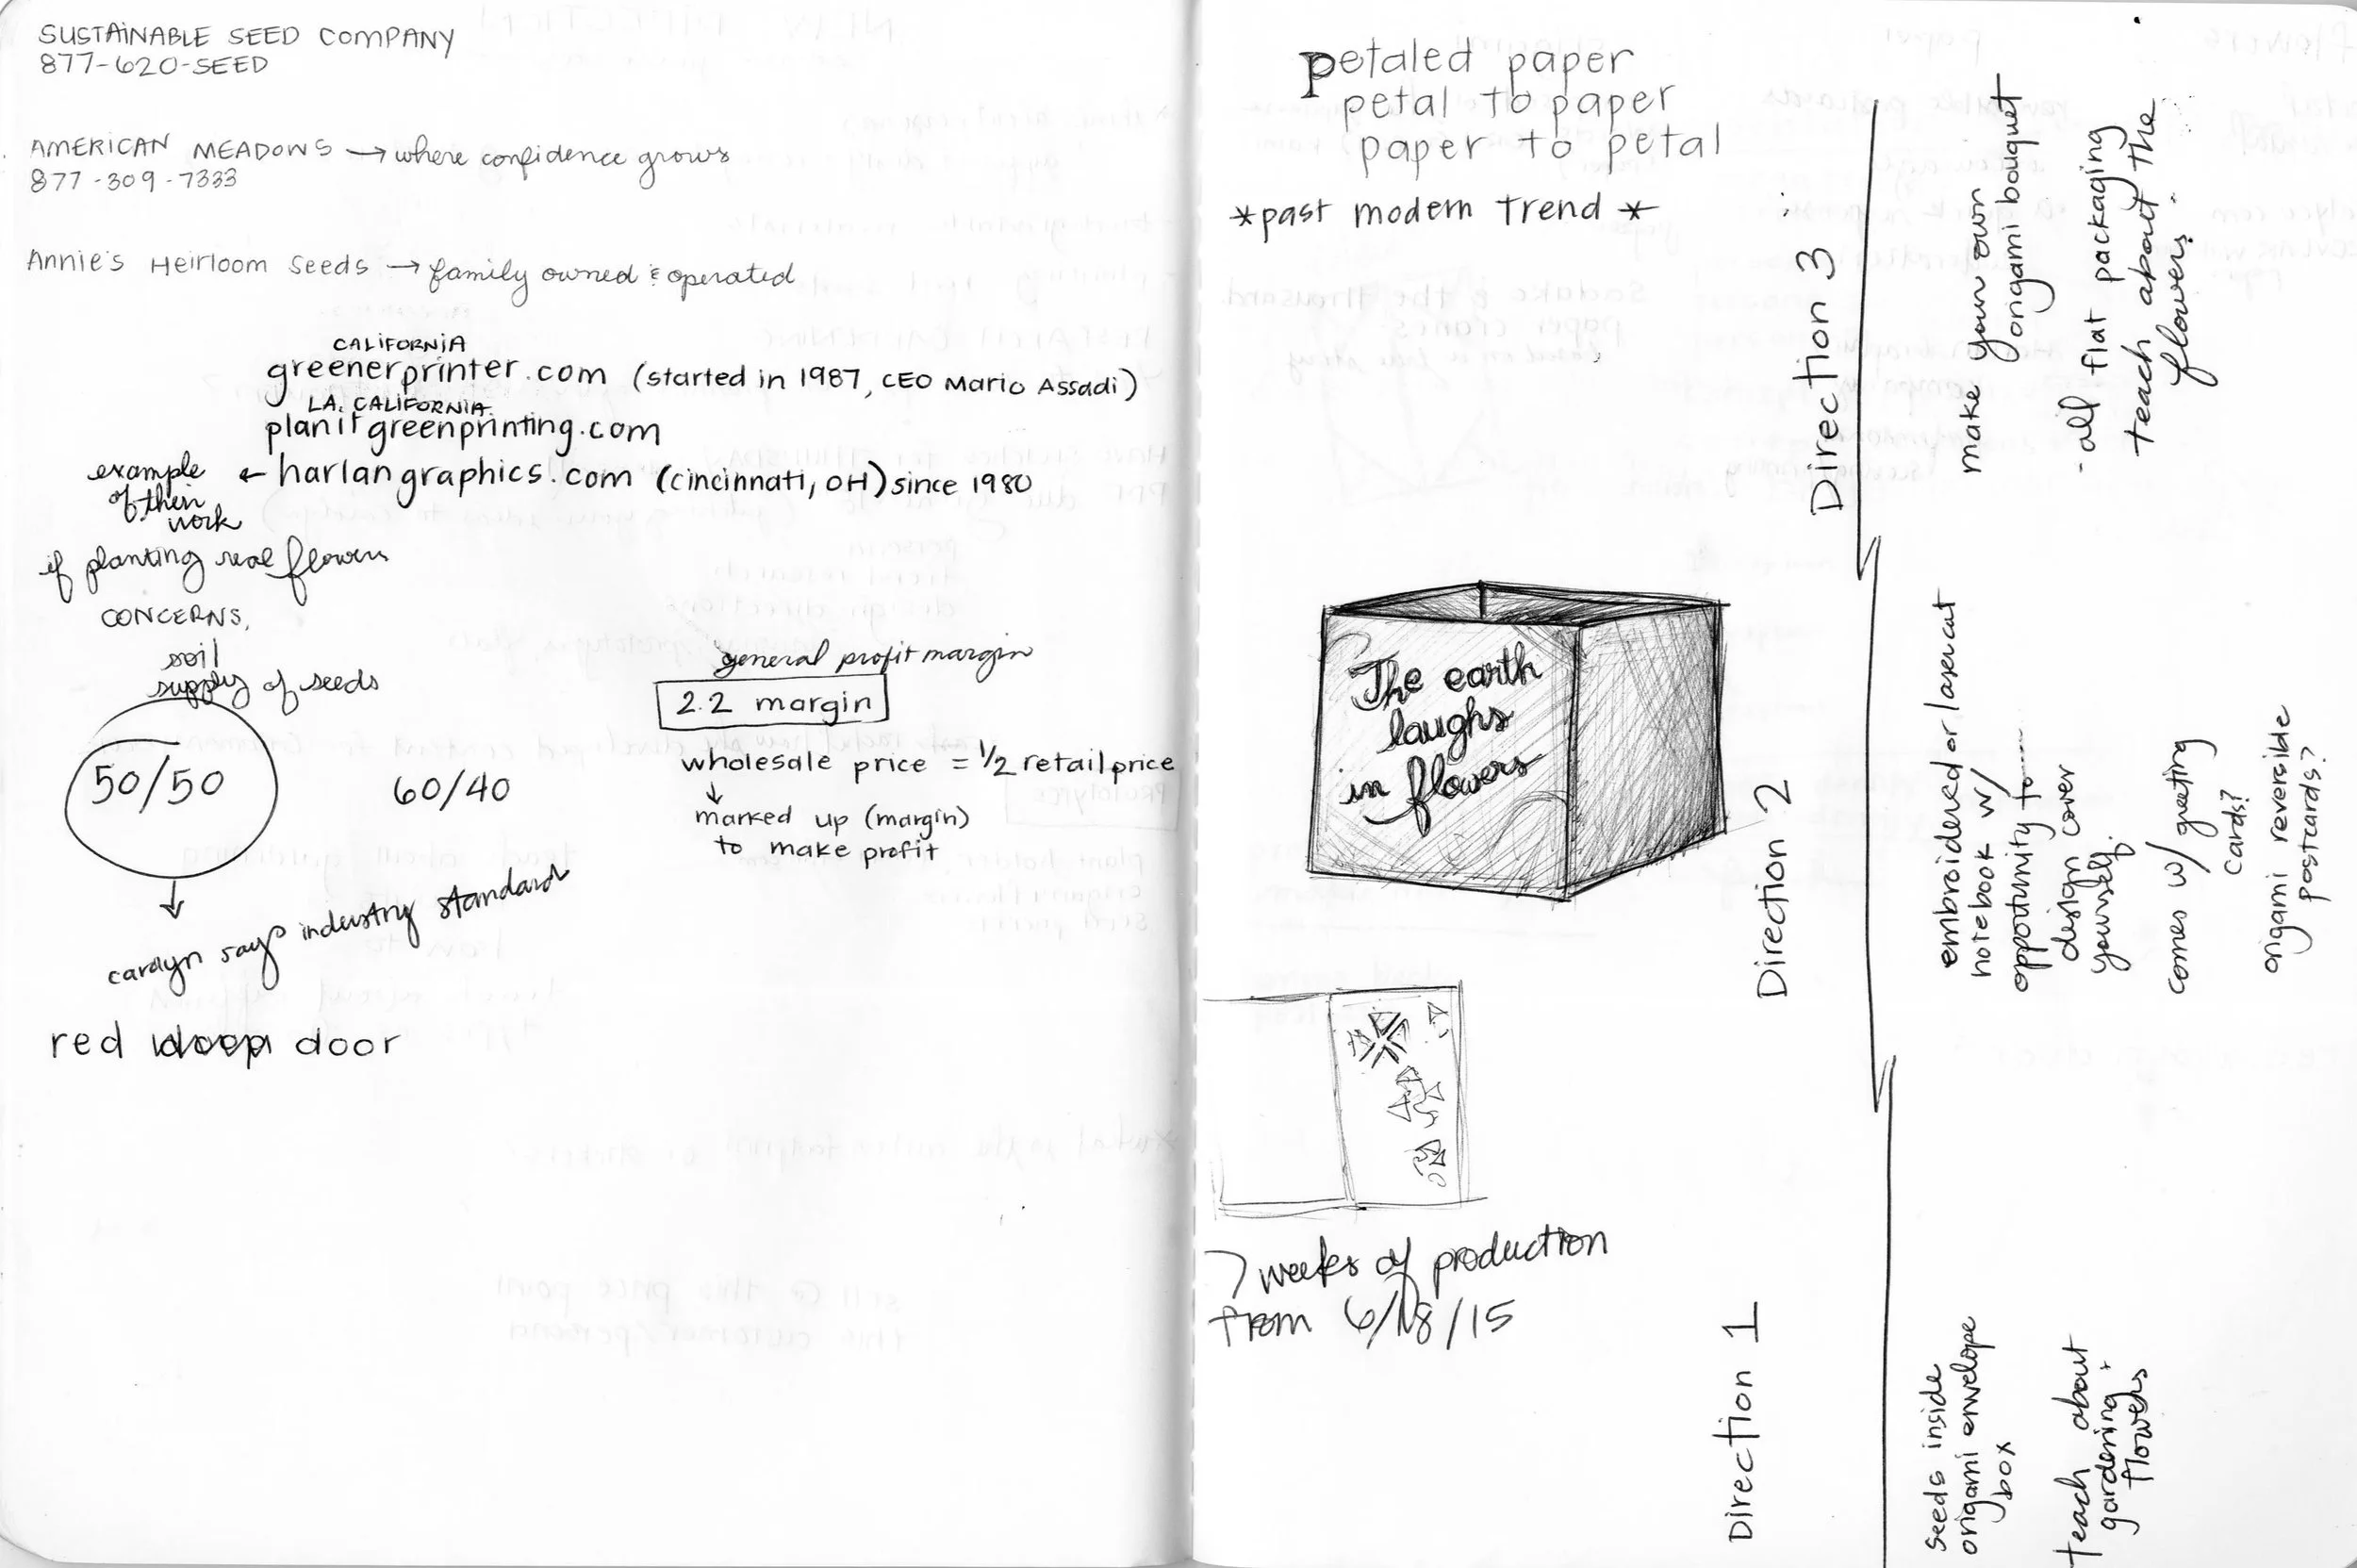 SUSTAINABLE SEED COMPANY
877-620-SEED
AMERICAN MEADOWS → where confidence grows
877-309-7333
Annie's Heirloom Seeds → family owned & operated
CALIFORNIA
greenerprinter.com (started in 1987, CEO Mario Assadi)
LA, CALIFORNIA
planitgreenprinting.com
example ← harlangraphics.com (cincinnati, OH) since 1980
of their
work
if planting real flowers
CONCERNS,
soil
supply of seeds
50/50
60/40
carolyn says industry standard
general profit margin
2.2 margin
wholesale price = 1/2 retail price
↓
marked up (margin)
to make profit
red door
petaled paper
petal to paper
paper to petal
*past modern trend*
The earth
laughs
in flowers
7 weeks of production
from 6/18/15
Direction 3
make your own
origami bouquet
- all flat packaging
teach about the
flowers?
Direction 2
embroidered or laser cut
notebook w/
opportunity to......
design cover
yourself.
comes w/ greeting
cards?
origami reversible
postcards?
Direction 1
Seeds inside
origami envelope
box
teach about
gardening +
flowers